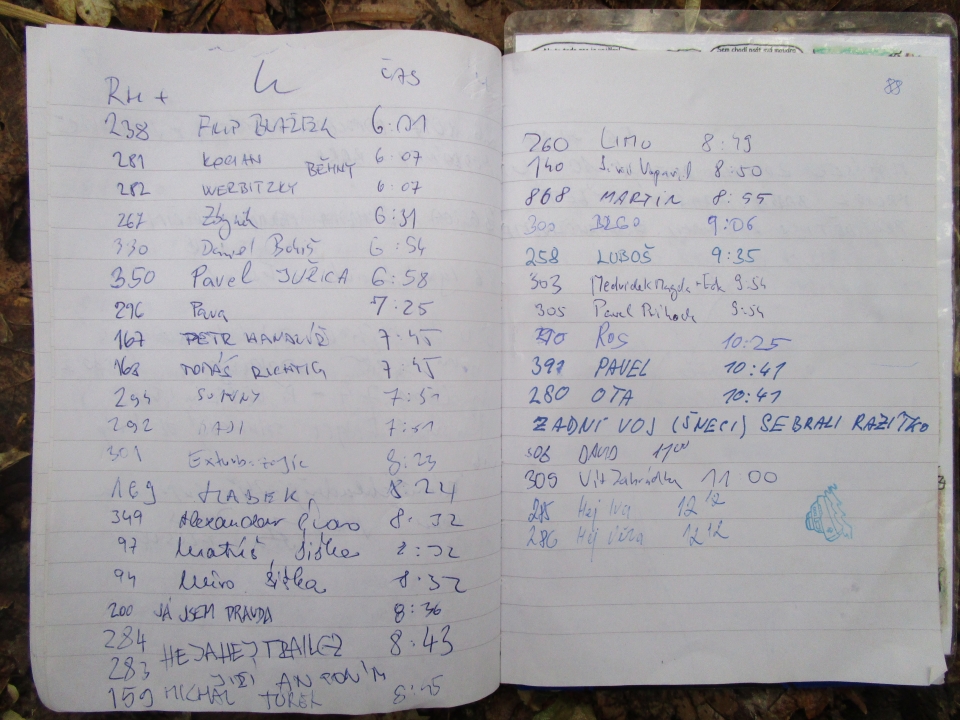 ČAS
238 FILIP BLAŽEK 6:01
281 KOCIAN 6:07
BĚHNY
282 WERBITZKY 6:07
267 Zbyněk 6:31
330 Daniel 6:54
350 Pavel JUŘICA 6:58
296 Pava 7:25
167 PETR 7:45
168 TOMÁŠ RICHTIG 7:45
294 7:51
292 7:51
301 8:23
169 HABEK 8:24
349 Alexander 8:32
97 Matěj Šiška 8:32
94 Miro Šiška 8:32
200 JÁ JSEM PRAVDA 8:36
284 HEJAHEJ TRAILEZ 8:43
283 JIŘÍ ANTONÍN
159 MICHAL TUREK 8:45
88
260 LIMO 8:49
140 8:50
868 MARTIN 8:55
300 9:06
258 LUBOŠ 9:35
303 Medvídek Magda + Eda 9:54
305 Pavel Příhoda 9:54
310 ROS 10:25
391 PAVEL 10:41
280 OTA 10:41
ZADNÍ VOJ (ŠNECI) SEBRALI RAZÍTKO
308 DAVID 11:00
309 Vít Zahrádka 11:00
285 Hej Iva 12:12
286 Hej 12:12